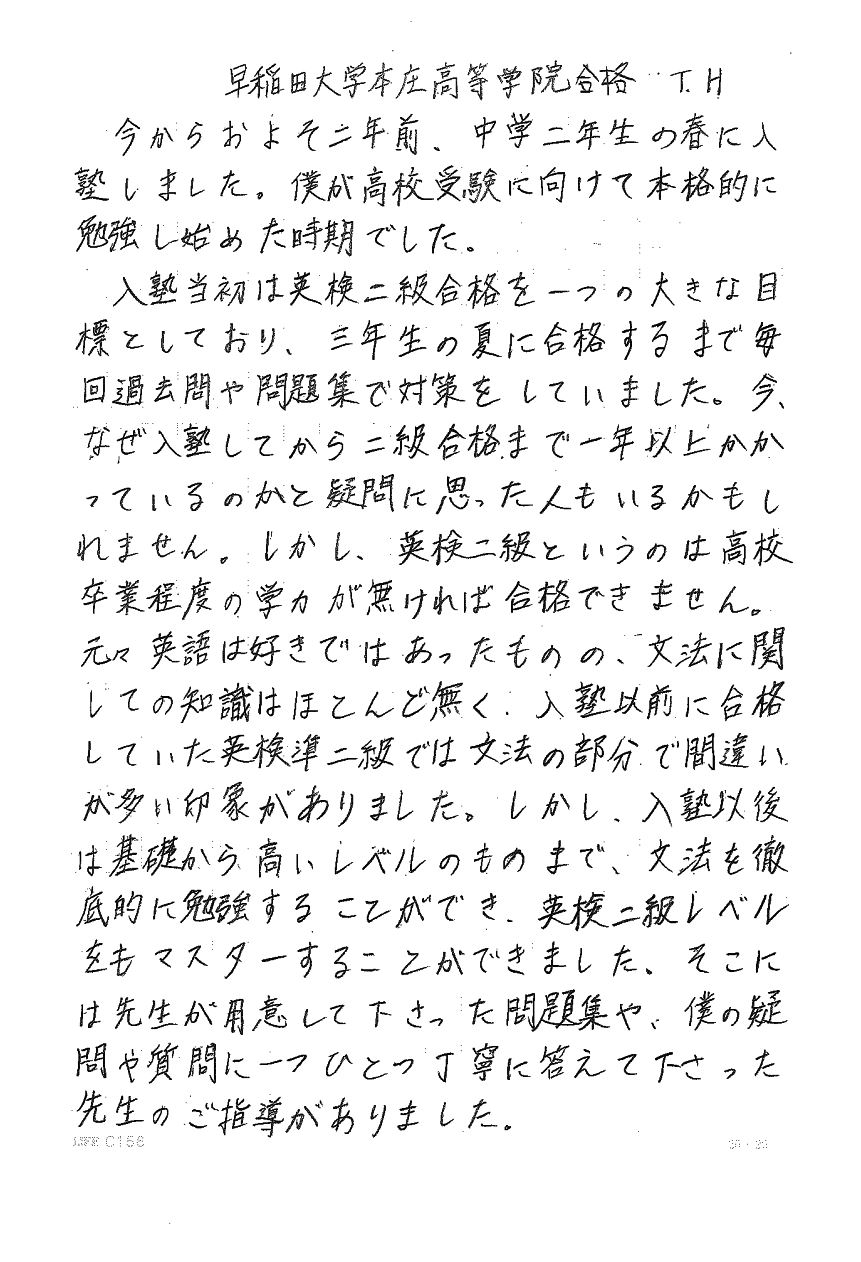 早稲田大学本庄高等学院合格 T.H
今からおよそ二年前、中学二年生の春に入
塾しました。僕が高校受験に向けて本格的に
勉強し始めた時期でした。
入塾当初は英検二級合格を一つの大きな目
標としており、三年生の夏に合格するまで毎
回過去問や問題集で対策をしていました。今、
なぜ入塾してから二級合格まで一年以上かか
っているのかと疑問に思った人もいるかもし
れません。しかし、英検二級というのは高校
卒業程度の学力が無ければ合格できません。
元々英語は好きではあったものの、文法に関
しての知識はほとんど無く、入塾以前に合格
していた英検準二級では文法の部分で間違い
が多い印象がありました。しかし、入塾以後
は基礎から高いレベルのものまで、文法を徹
底的に勉強することができ、英検二級レベル
をもマスターすることができました。そこに
は先生が用意して下さった問題集や、僕の疑
問や質問に一つひとつ丁寧に答えて下さった
先生のご指導がありました。
LIFE C156